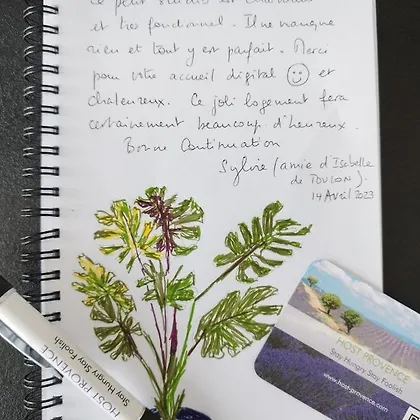 ce petit studio est
et très fonctionnel. Il ne manque
rien et tout y est parfait. Merci
pour votre accueil digital et
chaleureux. Ce joli logement fera
certainement beaucoup d'heureux.
Bonne Continuation
Sylvie (amie d'Isabelle
de TOULON).
14 Avril 2023
HOST PROVENCE
Stay Hungry Stay Foolish
HOST PROVENCE
Stay Hungry, Stay Foolish
www.host-provence.com